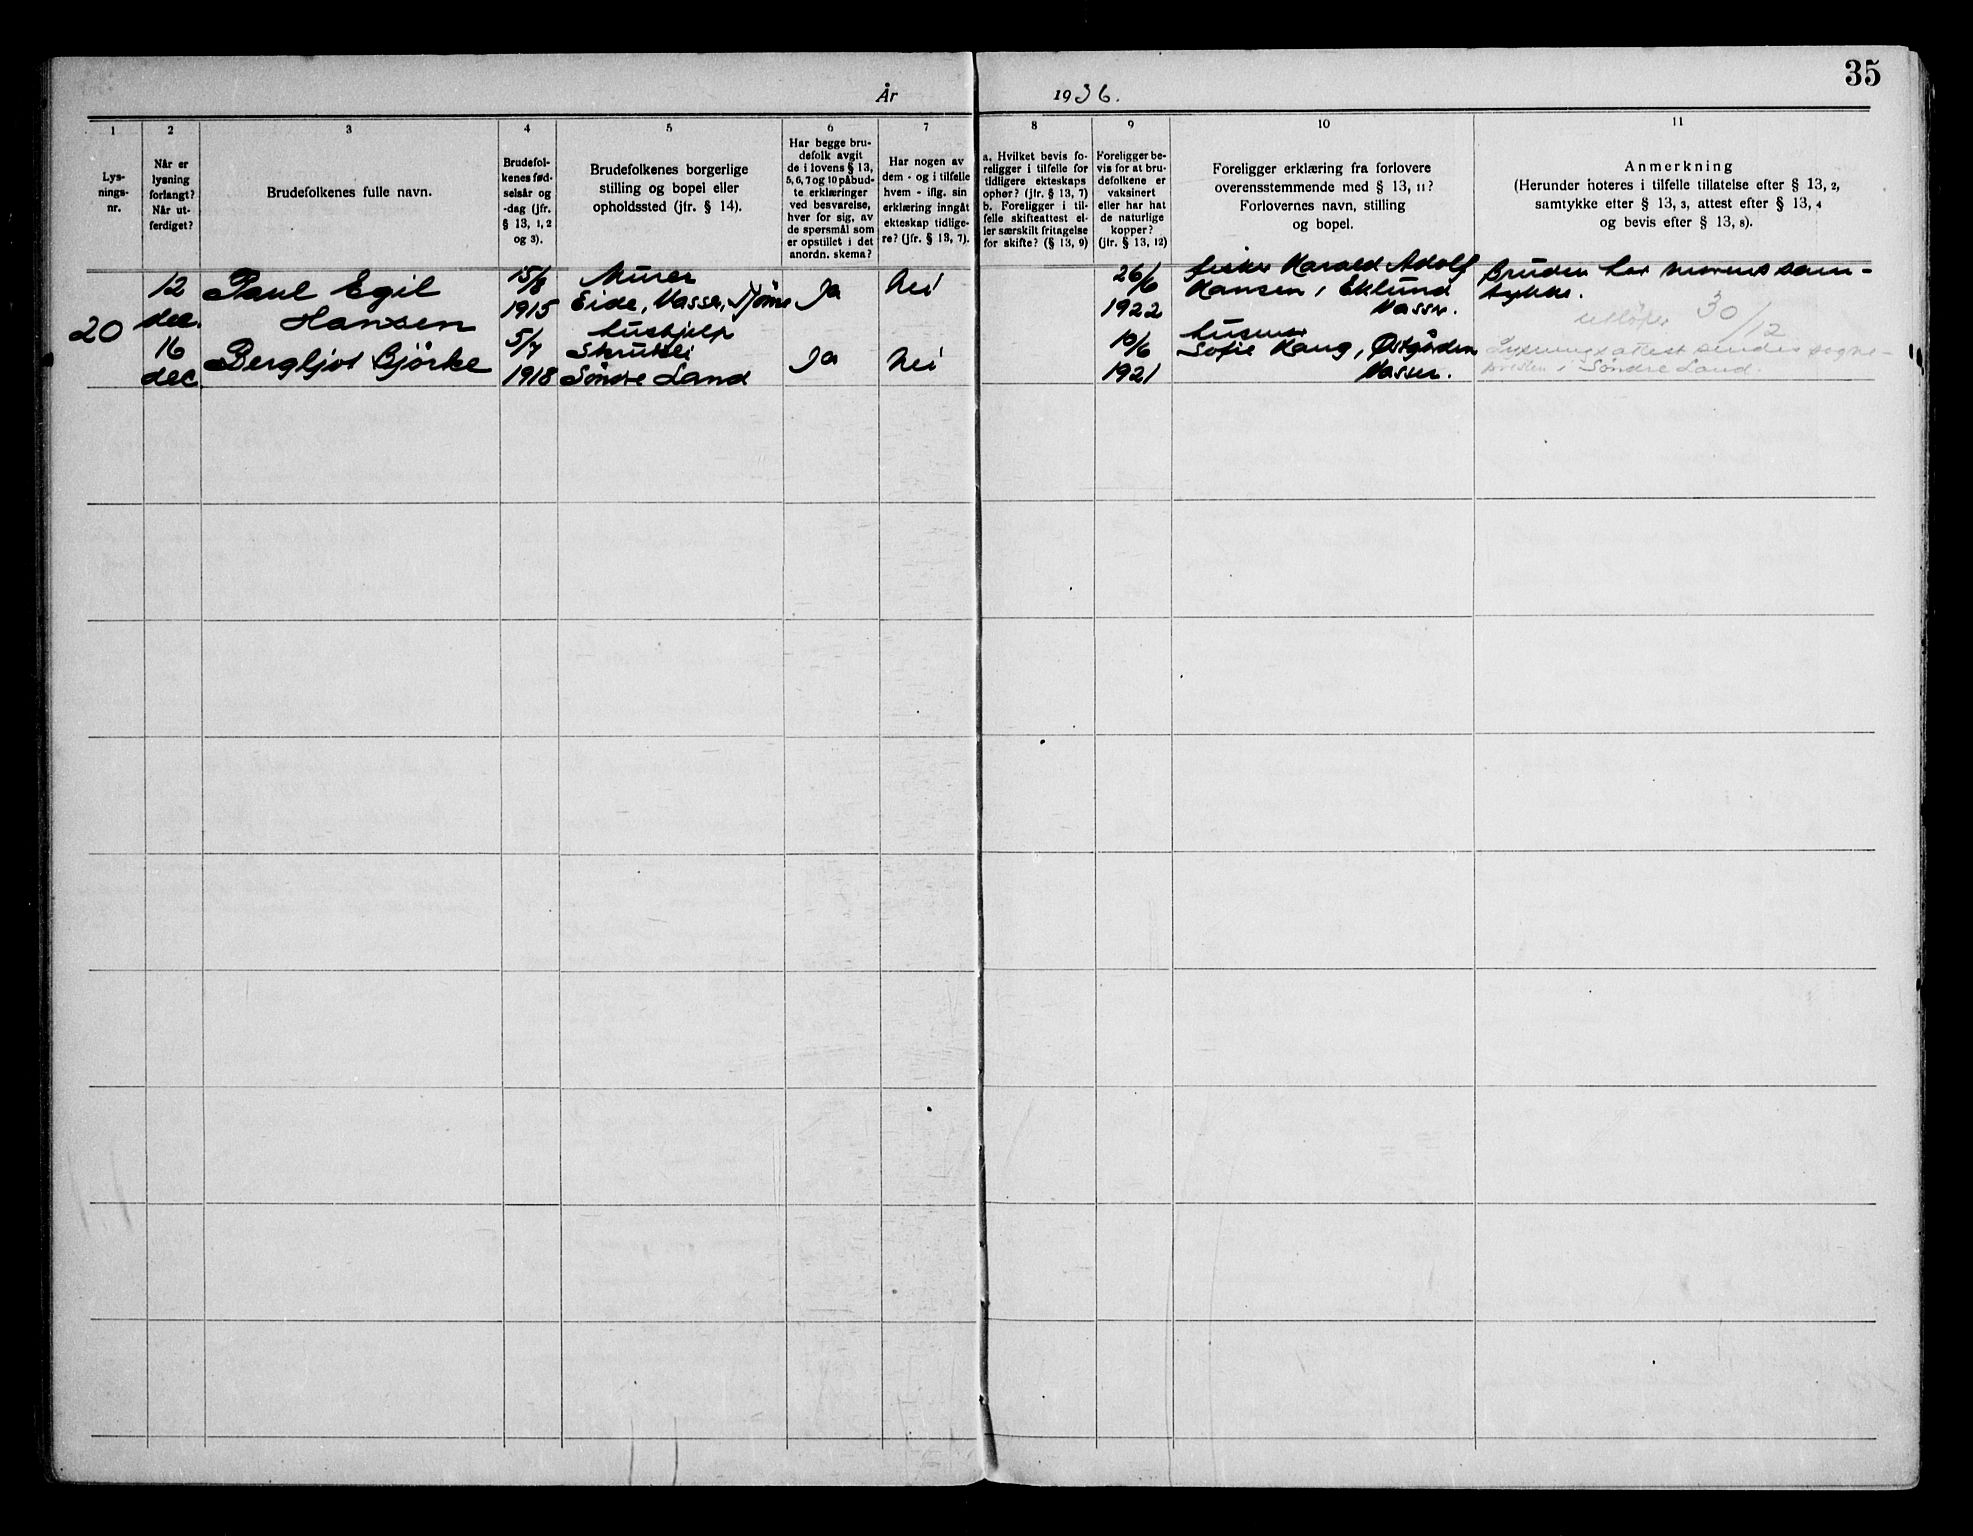 35
År 1936.
1
Lys-
nings-
nr.
2
Når er
lysning
forlangt?
Når ut-
ferdiget?
3
Brudefolkenes fulle navn.
4
Brudefol-
kenes fød-
selsår og
-dag (jfr.
§ 13, 1, 2
og 3).
5
Brudefolkenes borgerlige
stilling og bopel eller
opholdssted (jfr. § 14).
6
Har begge bru-
defolk avgit
de i lovens § 13,
5, 6, 7 og 10 påbud-
te erklæringer
ved besvarelse,
hver for sig, av
de spørsmål som
er opstillet i det
anordn. skema?
7
Har nogen av
dem - og i tilfelle
hvem - iflg. sin
erklæring inngåt
ekteskap tidlige-
re? (jfr. § 13, 7).
8
a. Hvilket bevis fo-
religger i tilfelle for
tidligere ekteskaps
ophør? (jfr. § 13, 7)
b. Foreligger i til-
felle skifteattest el-
ler særskilt fritagelse
for skifte? (§ 13, 9)
9
Foreligger be-
vis for at bru-
defolkene er
vaksinert
eller har hat
de naturlige
kopper?
(jfr. § 13, 12)
10
Foreligger erklæring fra forlovere
overensstemmende med § 13, 11?
Forlovernes navn, stilling
og bopel.
11
Anmerkning
(Herunder noteres i tilfelle tillatelse efter § 13, 2,
samtykke efter § 13, 3, attest efter § 13, 4
og bevis efter § 13, 8).
20
12
dec.
16
dec
Paul Egil
Hansen
Bergljot Bjørke
1915
5/7
1918
Murer
Eide, Vasser, Tjøme
hushjelp
Skrukli
Søndre Land
Ja
Ja
Nei
Nei
26/6
1922
10/6
1921
fisker Harald Adolf
Hansen, Eklund
Vasser.
husmor
Sofie Haug, Østgården
Vasser.
Bruden har morens sam-
tykke.
utløper 30/12
Lysningsattest sendes sogne-
presten i Søndre Land.